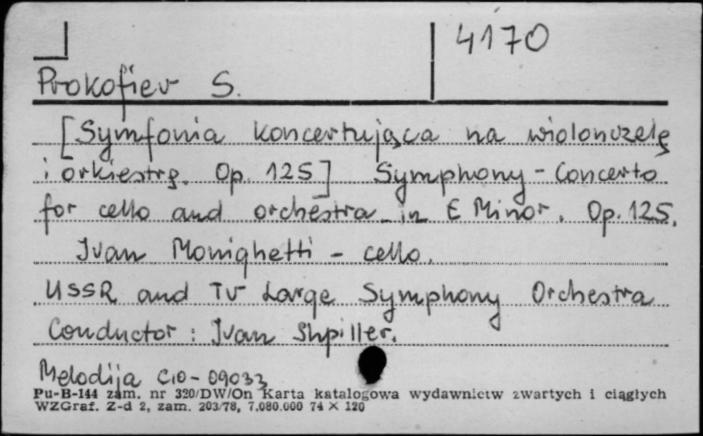 4170
Prokofiev S.
[Symfonia koncertująca na wiolonczelę
i orkiestrę. Op. 125] Symphony - Concerto
for cello and orchestra in E Minor. Op. 125.
Ivan Monighetti - cello.
USSR and TV Large Symphony Orchestra
Conductor: Ivan Shpiller.
Melodija C10-09033
Pu-B-144 zam. nr 320/DW/On Karta katalogowa wydawnictw zwartych i ciągłych
WZGraf. Z-d 2, zam. 203/78, 7.080.000 74 × 120